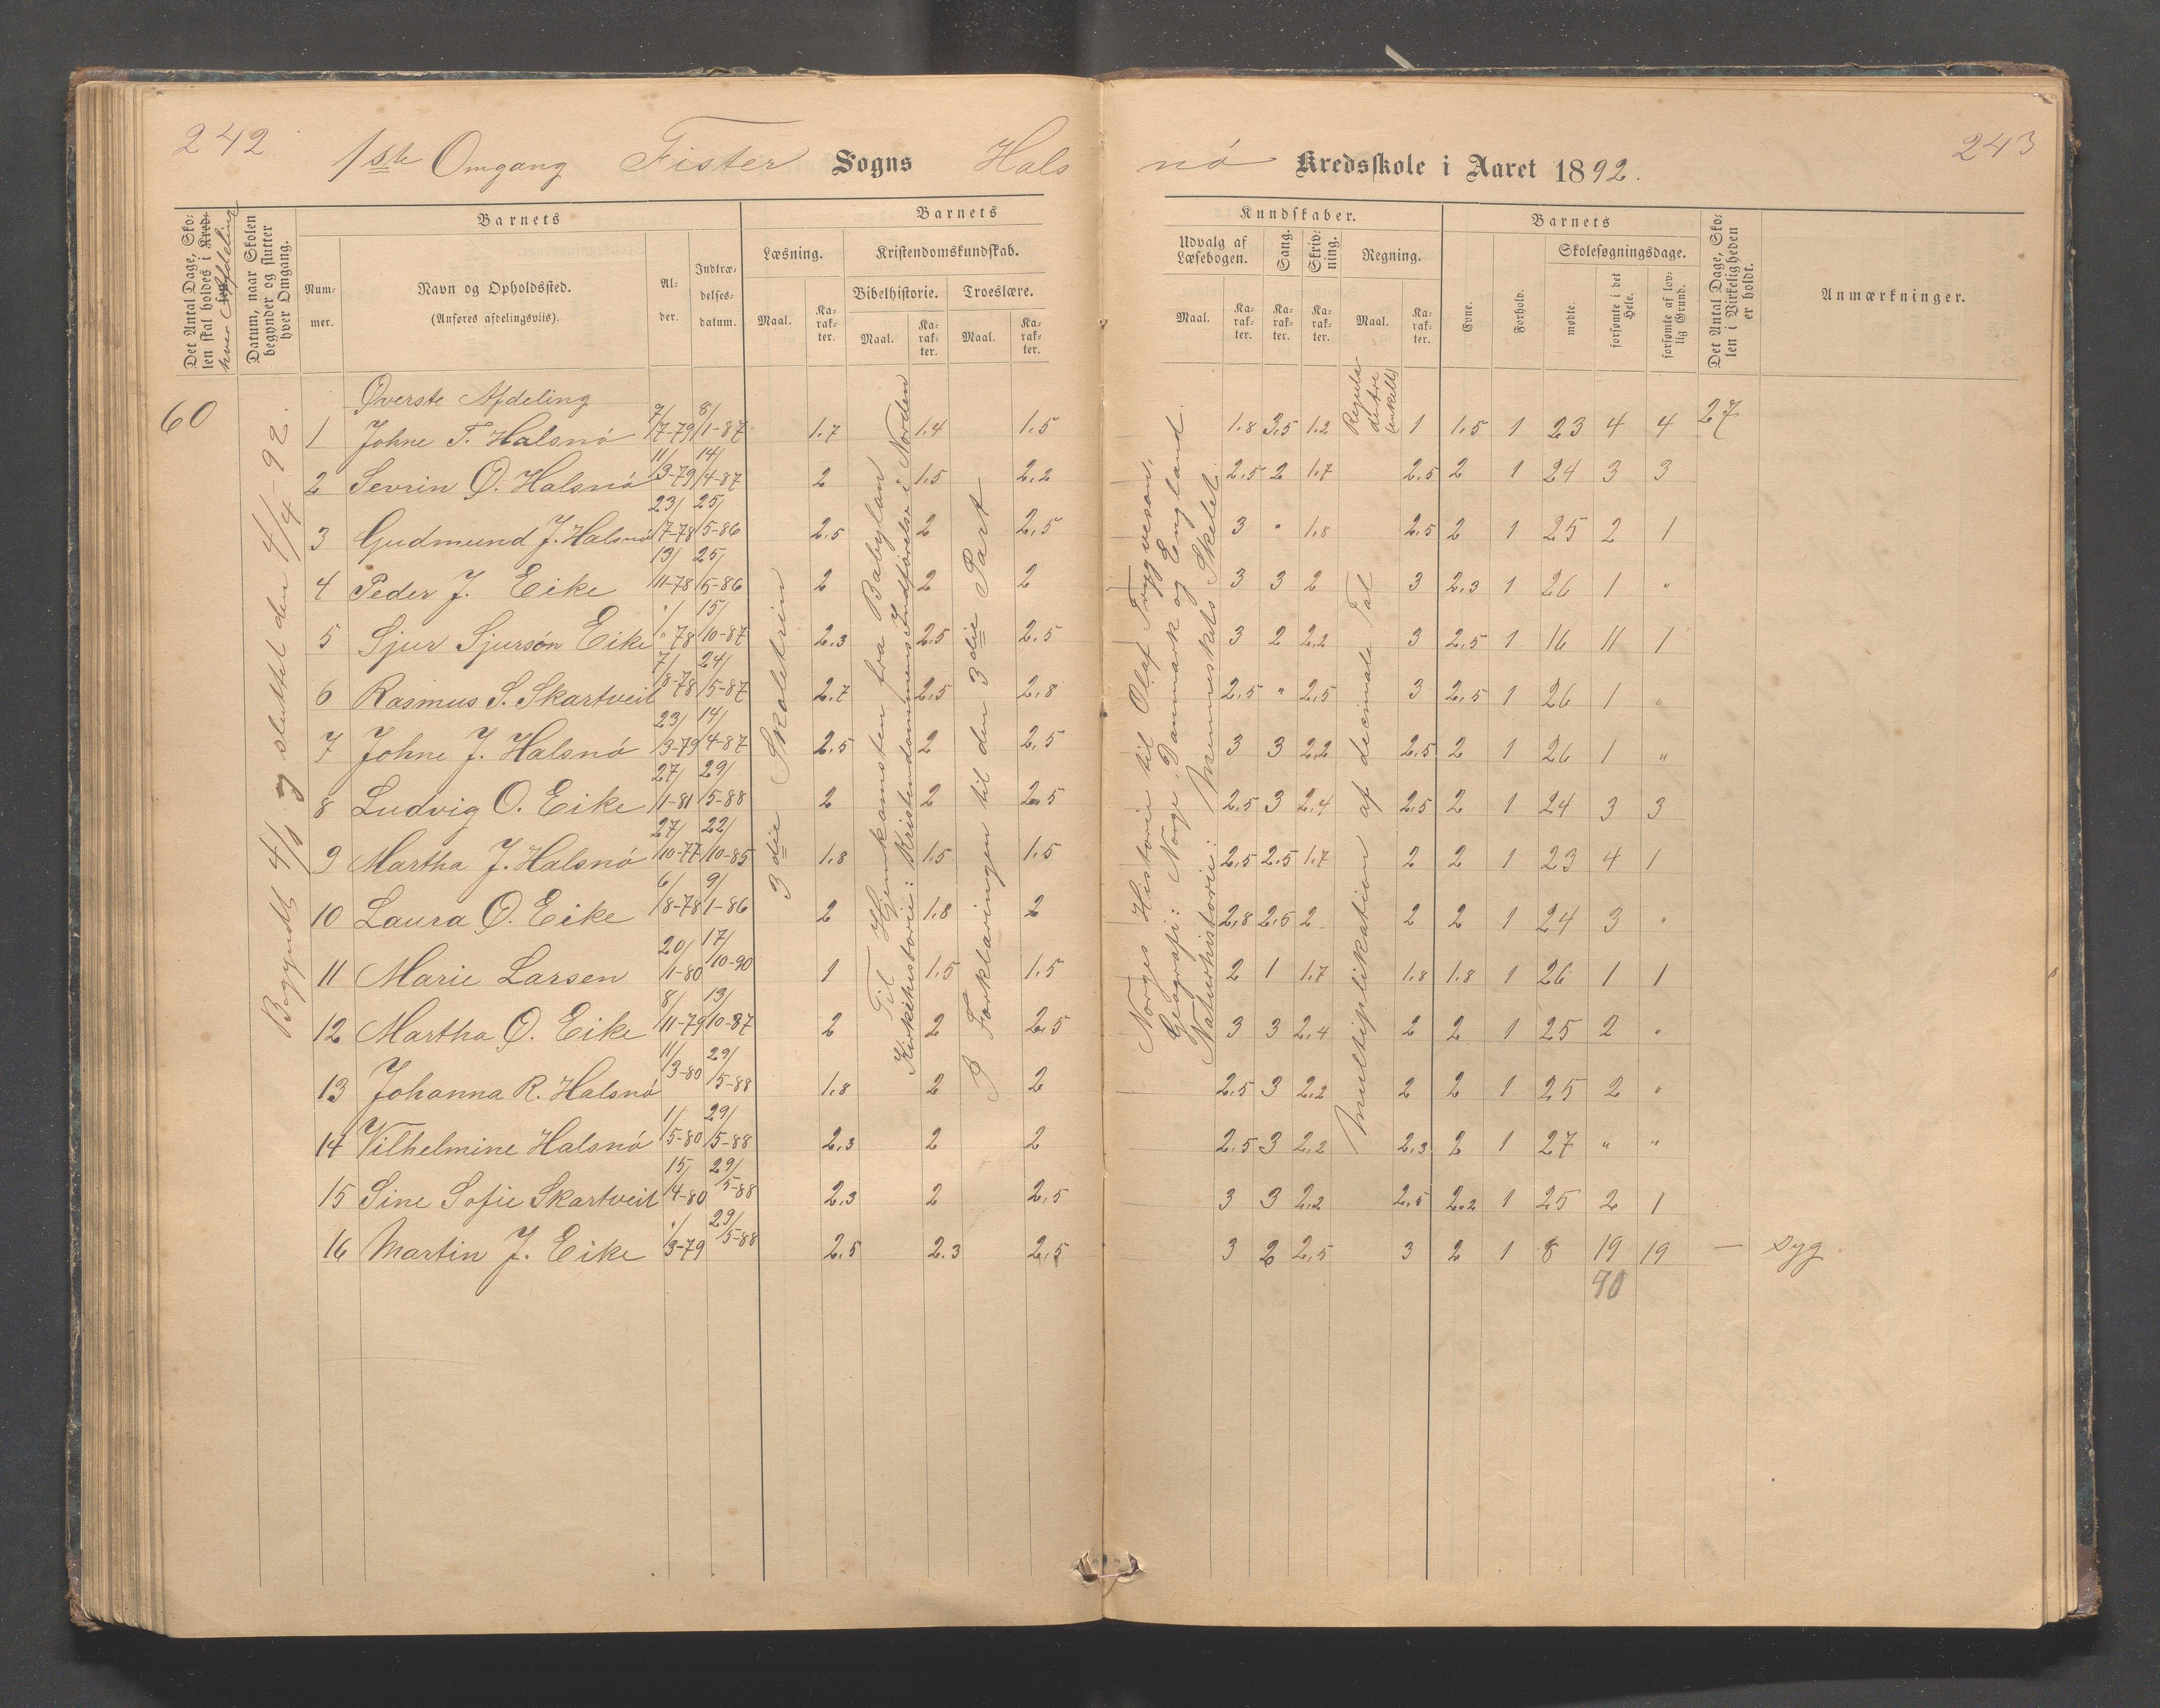 242
1ste Omgang Fister Sogns Halsnö Kredsskole i Aaret 1892.
243
Det Antal Dage, Skolen skal holdes i hver Afdeling
Datum, naar Skolen begynder og slutter hver Omgang.
Barnets
Nummer.
Navn og Opholdssted.
(Anføres afdelingsviis).
Alder.
Indtrædelsesdatum.
Barnets Kundskaber.
Læsning.
Maal.
Karakter.
Kristendomskundskab.
Bibelhistorie.
Maal.
Karakter.
Troeslære.
Maal.
Karakter.
Udvalg af Læsebogen.
Maal.
Karakter.
Sang.
Karakter.
Skrivning.
Karakter.
Regning.
Maal.
Karakter.
Barnets
Evne.
Forhold.
Skolesøgningsdage.
mødte.
forsømte i det Hele.
forsømte af lovlig Grund.
Det Antal Dage, Skolen i Virkeligheden er holdt.
Anmærkninger.
60
Begyndt 4/1 og sluttet den 4/4-92.
Øverste Afdeling
1 Johne T. Halsnö 9/7-79 8/1-87 1.7 1.4 1.5 1.8 3.5 1.2 1 1.5 1 23 4 4 27
2 Sevrin O. Halsnö 11/3-79 14/4-87 2 1.5 2.2 2.5 2 1.7 2.5 2 1 24 3 3
3 Gudmund J. Halsnö 23/7-78 25/5-86 2.5 2 2.5 3 " 1.8 2.5 2 1 25 2 1
4 Peder J. Eike 13/11-78 25/5-86 2 2 2 3 3 2 3 2.3 1 26 1 "
5 Sjur Sjursön Eike "/"78 15/10-87 2.3 2.5 2.5 3 2 2.2 3 2.5 1 16 11 1
6 Rasmus S. Skartveit 7/8-78 24/5-87 2.7 2.5 2.8 2.5 " 2.5 3 2.5 1 26 1 "
7 Johne J. Halsnö 23/3-79 14/4-87 2.5 2 2.5 3 3 2.2 2.5 2 1 26 1 "
8 Ludvig O. Eike 27/1-81 29/5-88 2 2 2.5 2.5 3 2.4 2.5 2 1 24 3 3
9 Martha J. Halsnö 27/10-77 22/10-85 1.8 1.5 1.5 2.5 2.5 1.7 2 2 1 23 4 1
10 Laura O. Eike 6/8-78 9/1-86 2 1.8 2 2.8 2.5 2 2 2 1 24 3 "
11 Marie Larsen 20/11-80 17/10-90 1 1.5 1.5 2 1 1.7 1.8 1.8 1 26 1 1
12 Martha O. Eike 8/11-79 13/10-87 2 2 2.5 3 3 2.4 2 2 1 25 2 "
13 Johanna R. Halsnö 11/3-80 29/5-88 1.8 2 2 2.5 3 2.2 2 2 1 25 2 "
14 Vilhelmine Halsnö 1/5-80 29/5-88 2.3 2 2 2.5 3 2.2 2.3 2 1 27 " "
15 Sine Sofie Skartveit 15/14-80 29/5-88 2.3 2 2.5 3 3 2.2 2.5 2.2 1 25 2 1
16 Martin J. Eike "/3-79 29/5-88 2.5 2.3 2.5 3 2 2.5 3 2 1 8 19 19 — Syg.
90
3die Skoletrin
Til Hjemkomsten fra Babylon
Kirkehistorie: Kristendommens Indförelse i Norden
I Forklaringen til den 3die Part
Norges Historie til Olaf Trygveson.
Geografi: Norge, Danmark og England.
Naturhistorie: Menneskets Skelet.
Regula de tre (enkelt)
Multiplikation af decimale Tal